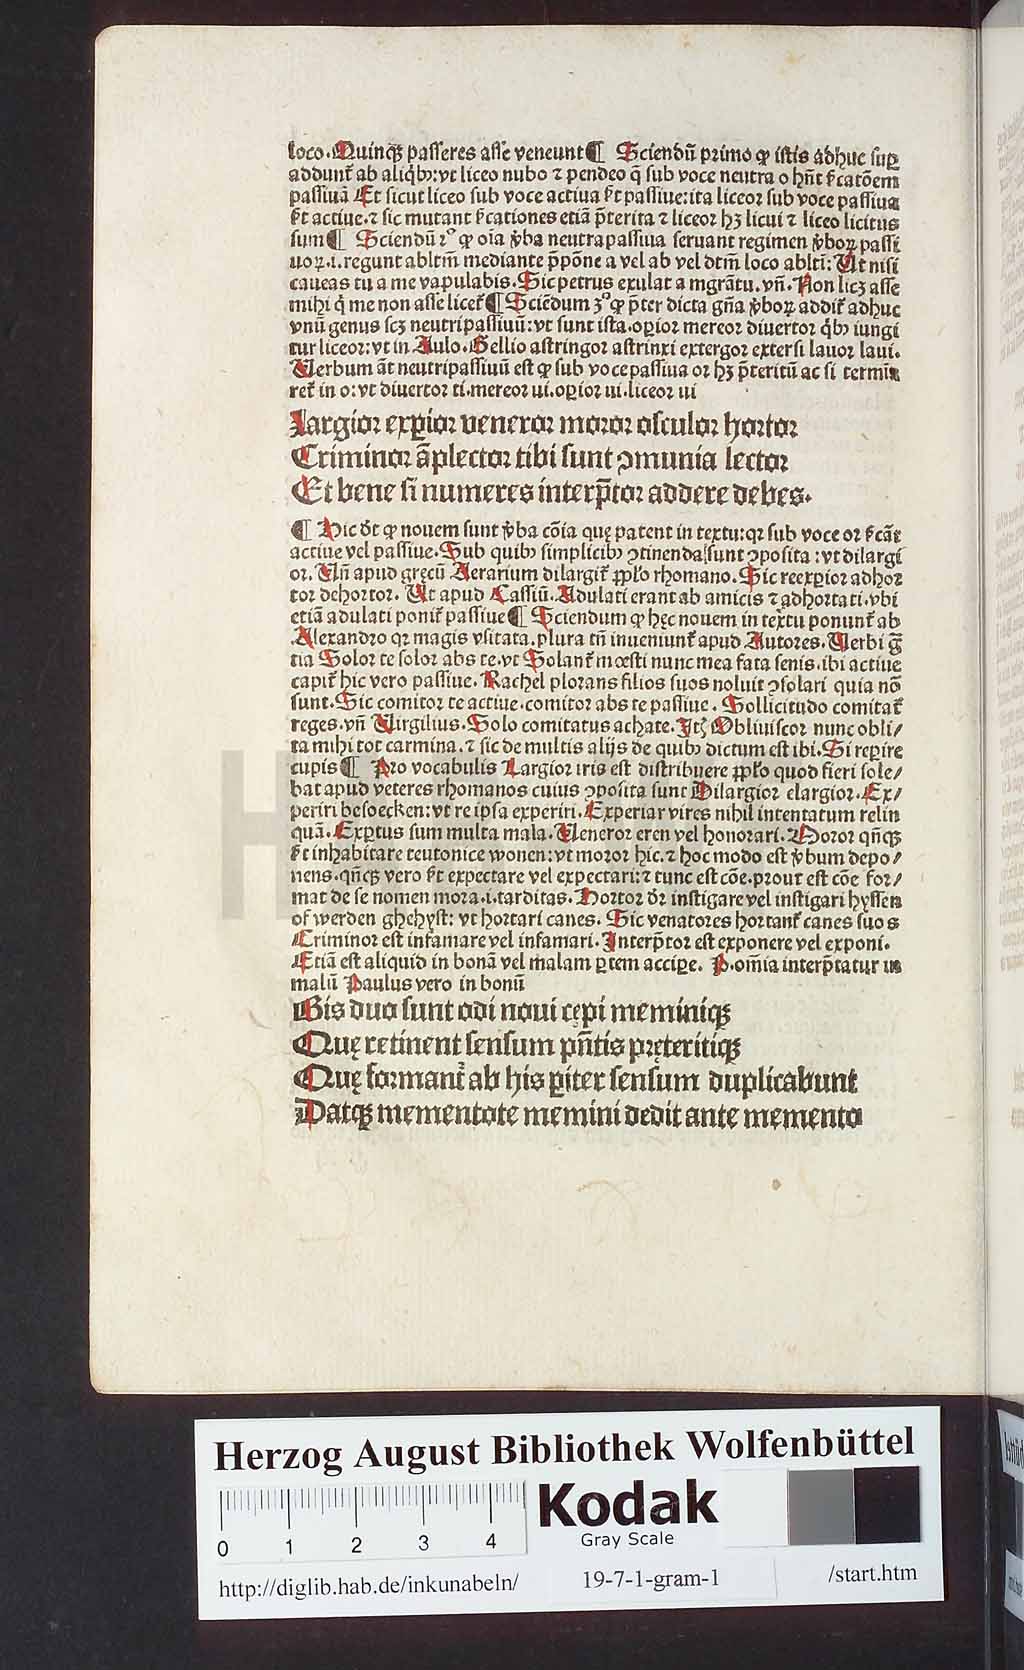 loco. Quinqꝫ passeres asse veneunt ¶ Sciendū primo ꝙ istis adhuc suꝑ
addunt᷑ ab aliqͥbꝰ: vt liceo nubo ⁊ pendeo q̄ sub voce neutra o hn̄t s͛catōem
passiuā Et sicut liceo sub voce actiua s͛t passiue: ita liceor sub voce passiua
s͛t actiue. ⁊ sic mutant s͛cationes etiā p̄terita ⁊ liceor hꝫ licui ⁊ liceo licitus
sum ¶ Sciendū 2° ꝙ oīa v̓ba neutrapassiua seruant regimen v̓boꝝ passi
uoꝝ .i. regunt abltm̄ mediante p̄pōne a vel ab vel dtm̄ loco ablti: Ut nisi
caueas tu a me vapulabis. Sic petrus exulat a mgr̄atu. vn̄. Non licꝫ asse
mihi qͥ me non asse licet᷑ ¶ Sciēdum 3° ꝙ p̄ter dicta gn̄a v̓boꝝ addit᷑ adhuc
vnū genus scꝫ neutripassiuū: vt sunt ista. oꝑior mereor diuertor qͥbꝰ iungi
tur liceor: vt in Aulo. Gellio astringor astrinxi extergor extersi lauor laui.
Uerbum āt neutripassiuū est ꝙ sub voce passiua or hꝫ p̄teritū ac si termīa
ret᷑ in o: vt diuertor ti. mereor ui. oꝑior ui. liceor ui
Largior exꝑior veneror moror osculor hortor
Criminor āplector tibi sunt ꝯmunia lector
Et bene si numeres interp̄tor addere debes.
¶ Hic dt̄ ꝙ nouem sunt v̓ba cōia quę patent in textu: qꝛ sub voce or s͛cāt
actiue vel passiue. Sub quibꝰ simplicibꝰ ꝯtinenda sunt ꝯposita: vt dilargi
or. Un̄ apud gręcū Aerarium dilargit᷑ pplo rhomano. Sic reexꝑior adhor
tor dehortor. Ut apud Cassiū. Adulati erant ab amicis ⁊ adhortati. vbi
etiā adulati ponit᷑ passiue ¶ Sciendum ꝙ hęc nouem in textu ponunt᷑ ab
Alexandro qꝛ magis vsitata. plura tn̄ inueniunt᷑ apud Autores. Uerbi gr̄
tia Solor te solor abs te. vt Solant᷑ mœsti nunc mea fata senis. ibi actiue
capit᷑ hic vero passiue. Rachel plorans filios suos noluit ꝯsolari quia nō
sunt. Sic comitor te actiue. comitor abs te passiue. Sollicitudo comitat᷑
reges. vn̄ Uirgilius. Solo comitatus achate. Itē Obliuiscor nunc obli/
ta mihi tot carmina. ⁊ sic de multis alijs de quibꝰ dictum est ibi. Si reꝑire
cupis ¶ Pro vocabulis Largior iris est distribuere pplo quod fieri sole/
bat apud veteres rhomanos cuius ꝯposita sunt Dilargior elargior. Ex/
periri besoecken: vt re ipsa experiri. Experiar vires nihil intentatum relin
quā. Exꝑtus sum multa mala. Ueneror eren vel honorari. Moror qn̄qꝫ
s͛t inhabitare teutonice wonen: vt moror hic. ⁊ hoc modo est v̓bum depo/
nens. qn̄qꝫ vero s͛t expectare vel expectari: ⁊ tunc est cōe. prout est cōe for/
mat de se nomen mora .i. tarditas. Hortor dr̄ instigare vel instigari hyssen
of werden ghehyst: vt hortari canes. Sic venatores hortant᷑ canes suos
Criminor est infamare vel infamari. Interp̄tor est exponere vel exponi.
Etiā est aliquid in bonā vel malam ꝑtem acciꝑe. P. om̄ia interp̄tatur in
malū Paulus vero in bonū
Bis duo sunt odi noui cępi meminiqꝫ
Quę retinent sensum pn̄tis pręteritiqꝫ
Quę formant᷑ ab his ꝑiter sensum duplicabunt
Datqꝫ mementote memini dedit ante memento
Herzog August Bibliothek Wolfenbüttel
0 1 2 3 4
Kodak
Gray Scale
http://diglib.hab.de/inkunabeln/ 19-7-1-gram-1 /start.htm